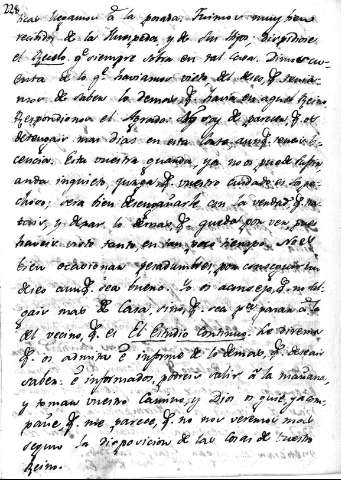 228
llegamos à la posada. Fuimos muy bien
recibidos de la Huespeda, y de sus hijos, despidiose
el Zuelo, qe siempre entra en tal casa. Dimos cu-
enta de lo qe haviamos visto del deseo, q tenia-
mos de saber lo demas, q havia en aquel Reino.
Respondionos el Agrado. No soy de parecer, q os
detengais mas dias en esta Corte, aunq teneis li-
cencia. Esta vuestra guarda, ya no os puede sufrir,
anda inquieto, juzga q vuestro cuidado es sospe-
choso; sera bien desengañarle con la verdad, q tra-
tais, y dejar lo demas, q queda por ver, pues
haveis visto tanto en tan poco tiempo. No es
bien ocasionar pesadumbres por conseguir un
deseo aunq sea bueno. Yo os aconsejo, q no sal-
gais mas de Casa, sino, q sea para pasar a la
del vecino, q es El Estudio Continuo. Le diremos
q os admita è informe de lo demas, q deseais
saber. è informados, podreis salir à la mañana,
y tomar vuestro Camino, y Dios os guie, y acom-
pañe, q me parece, q no nos veremos mas
segun la disposicion de las cosas de nuestro
Reino.